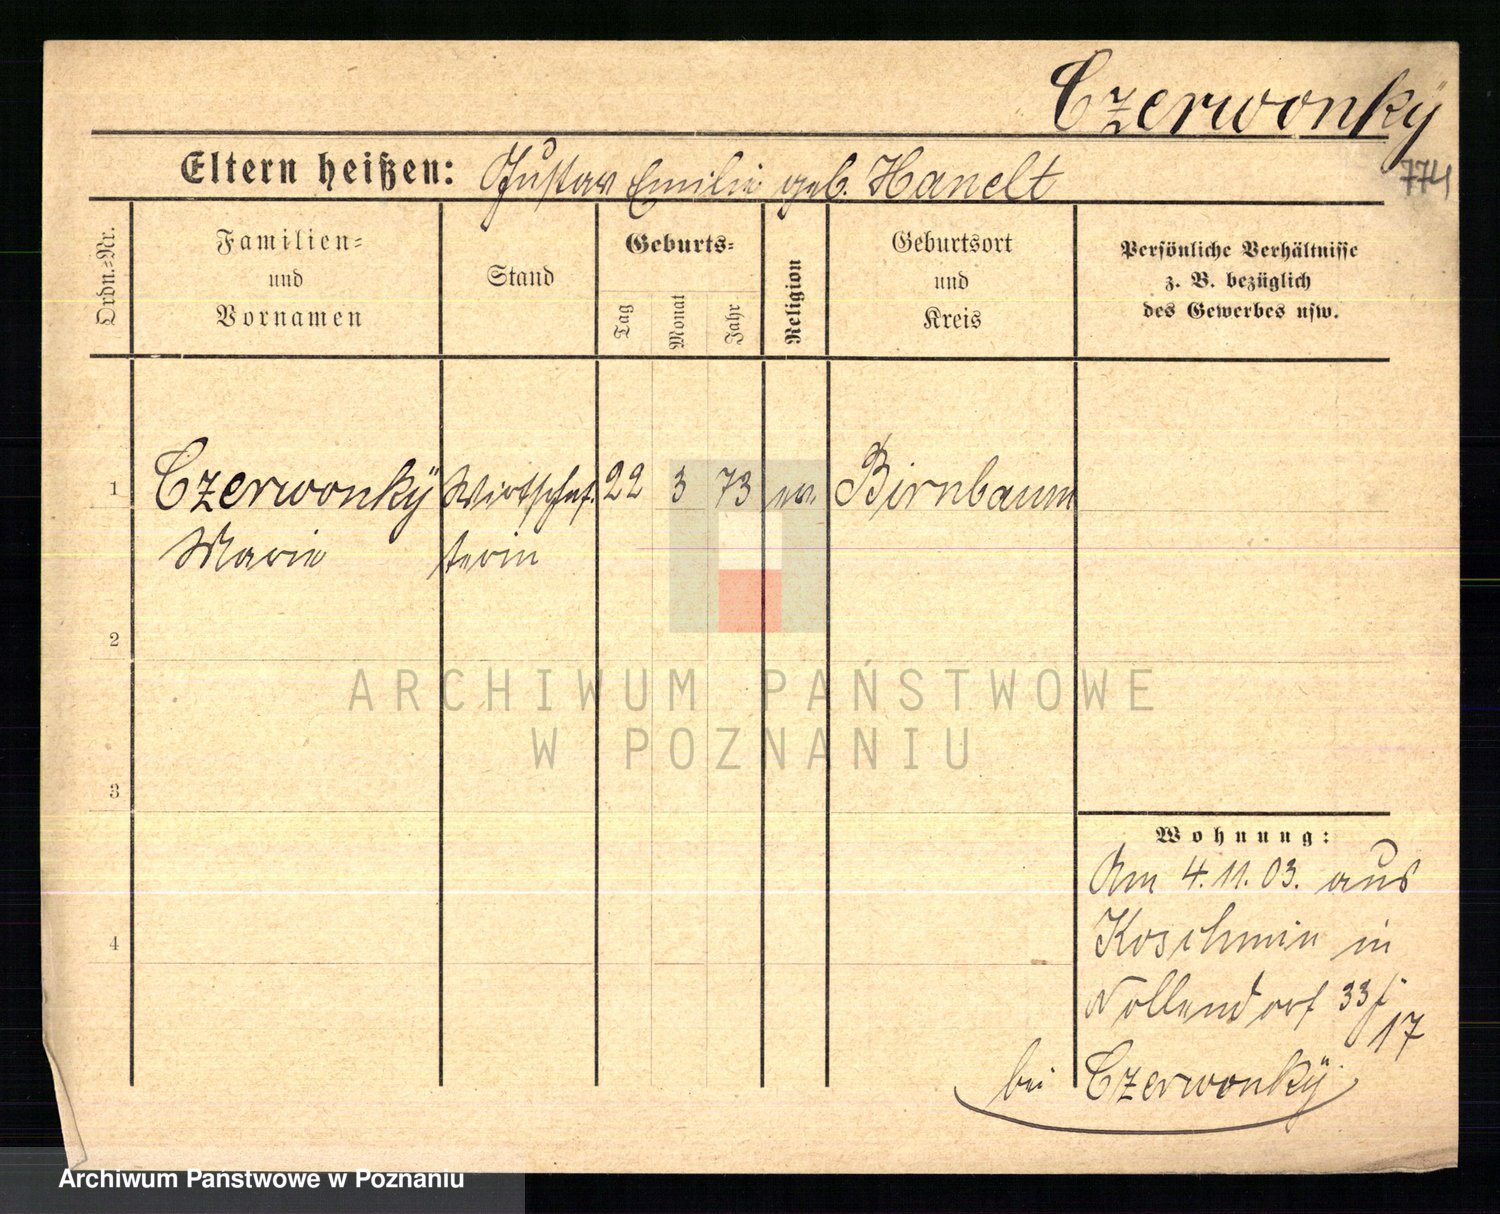 Czerwonkÿ
Eltern heißen: Gustav Emilie geb. Hanelt
774
Ordn.=Nr.
Familien=
und
Vornamen
Stand
Geburts=
Tag
Monat
Jahr
Religion
Geburtsort
und
Kreis
Persönliche Verhältnisse
z. B. bezüglich
des Gewerbes usw.
1 Czerwonkÿ Wirtschaf. 22 3 73 ev. Birnbaum
Marie terin
2
3
4
Wohnung:
Am 4.11.03. aus
Koschmin in
Nollendorf 33
17
bei Czerwonkÿ
ARCHIWUM PAŃSTWOWE
W POZNANIU
Archiwum Państwowe w Poznaniu